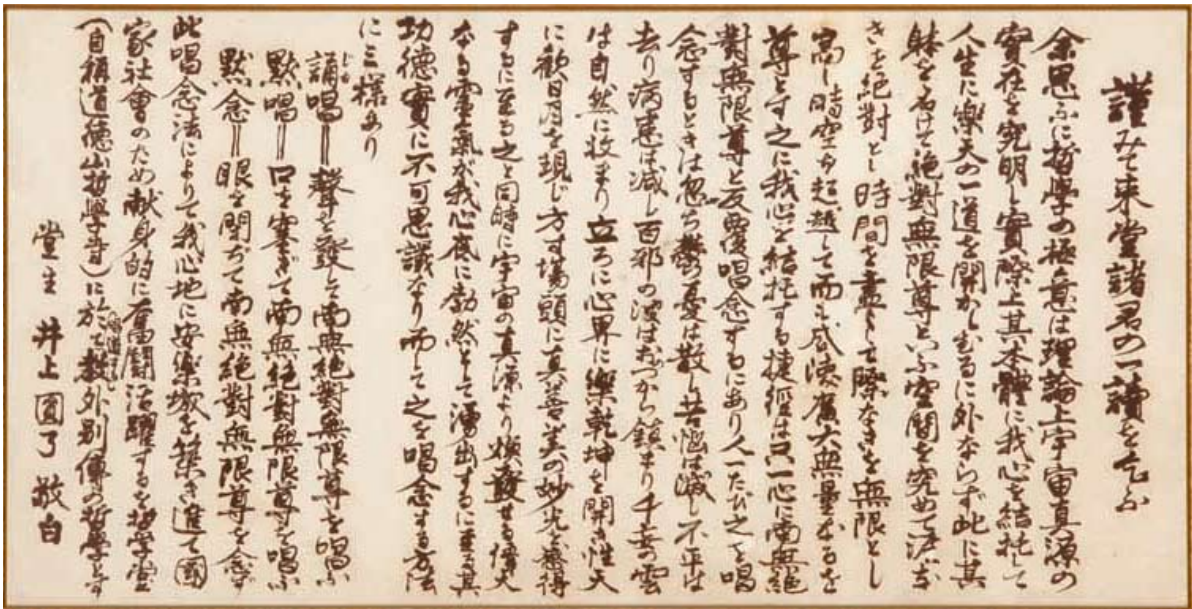 謹みて来堂諸君の一讀を乞ふ
余思ふに哲學の極意は理論上宇宙真源の
實在を究明し實際上其本體に我心を結托して
人生に樂天の一道を開かしむるに外ならず此に其
躰を名けて絶對無限尊といふ空間を究めて涯な
きを絶對とし時間を盡して際なきを無限とし
高し時空を超越して而も威徳廣大無量なるを
尊とす之に我心を結托する捷徑は只一心に南無絶
對無限尊と反覆唱念するにあり人一たび之を唱
念するときは忽ち鬱憂は散じ苦悩は減し不平は
去り病患は減し百邪の波はおのづから鎮まり千妄の雲
は自然に收まり立ろに心界に樂乾坤を開き性天
に歓日月を現じ方寸場頭に真善美の妙光を感得
するに至る之と同時に宇宙の真源より煥發せる偉大
なる靈氣が我心底に勃然として湧出するに至る其
功德實に不可思議なり而して之を唱念する方法
に三様あり
誦唱＝聲を發して南無絶對無限尊を唱ふ
黙唱＝口を塞ぎて南無絶對無限尊を唱ふ
黙念＝眼を閉ぢて南無絶對無限尊を念ず
此唱念法によりて我心地に安樂城を築き進て國
家社會のため献身的に奮闘活躍するを哲學堂
（自稱道德山哲學寺）に於て教外別傳の哲學とす
堂主 井上圓了 敬白